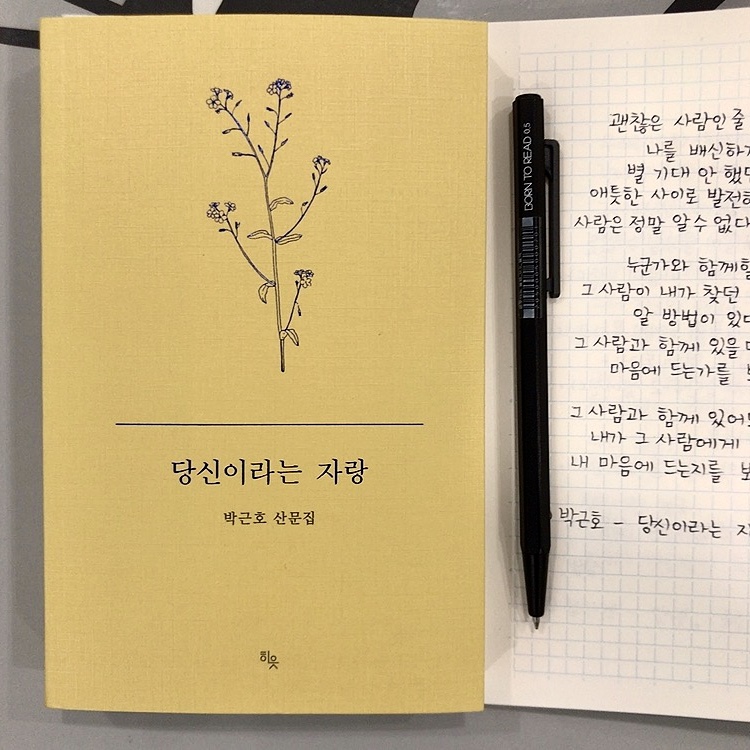 당신이라는 자랑
박근호 산문집
히읏
BORN TO READ 0.5
괜찮은 사람인 줄
나를 배신하기
별 기대 안 했던
애틋한 사이로 발전하
사람은 정말 알 수 없다
누군가와 함께할
그 사람이 내가 찾던
알 방법이 있다
그 사람과 함께 있을 때
마음에 드는가를
그 사람과 함께 있어
내가 그 사람에게
내 마음에 드는지를
박근호 - 당신이라는 자